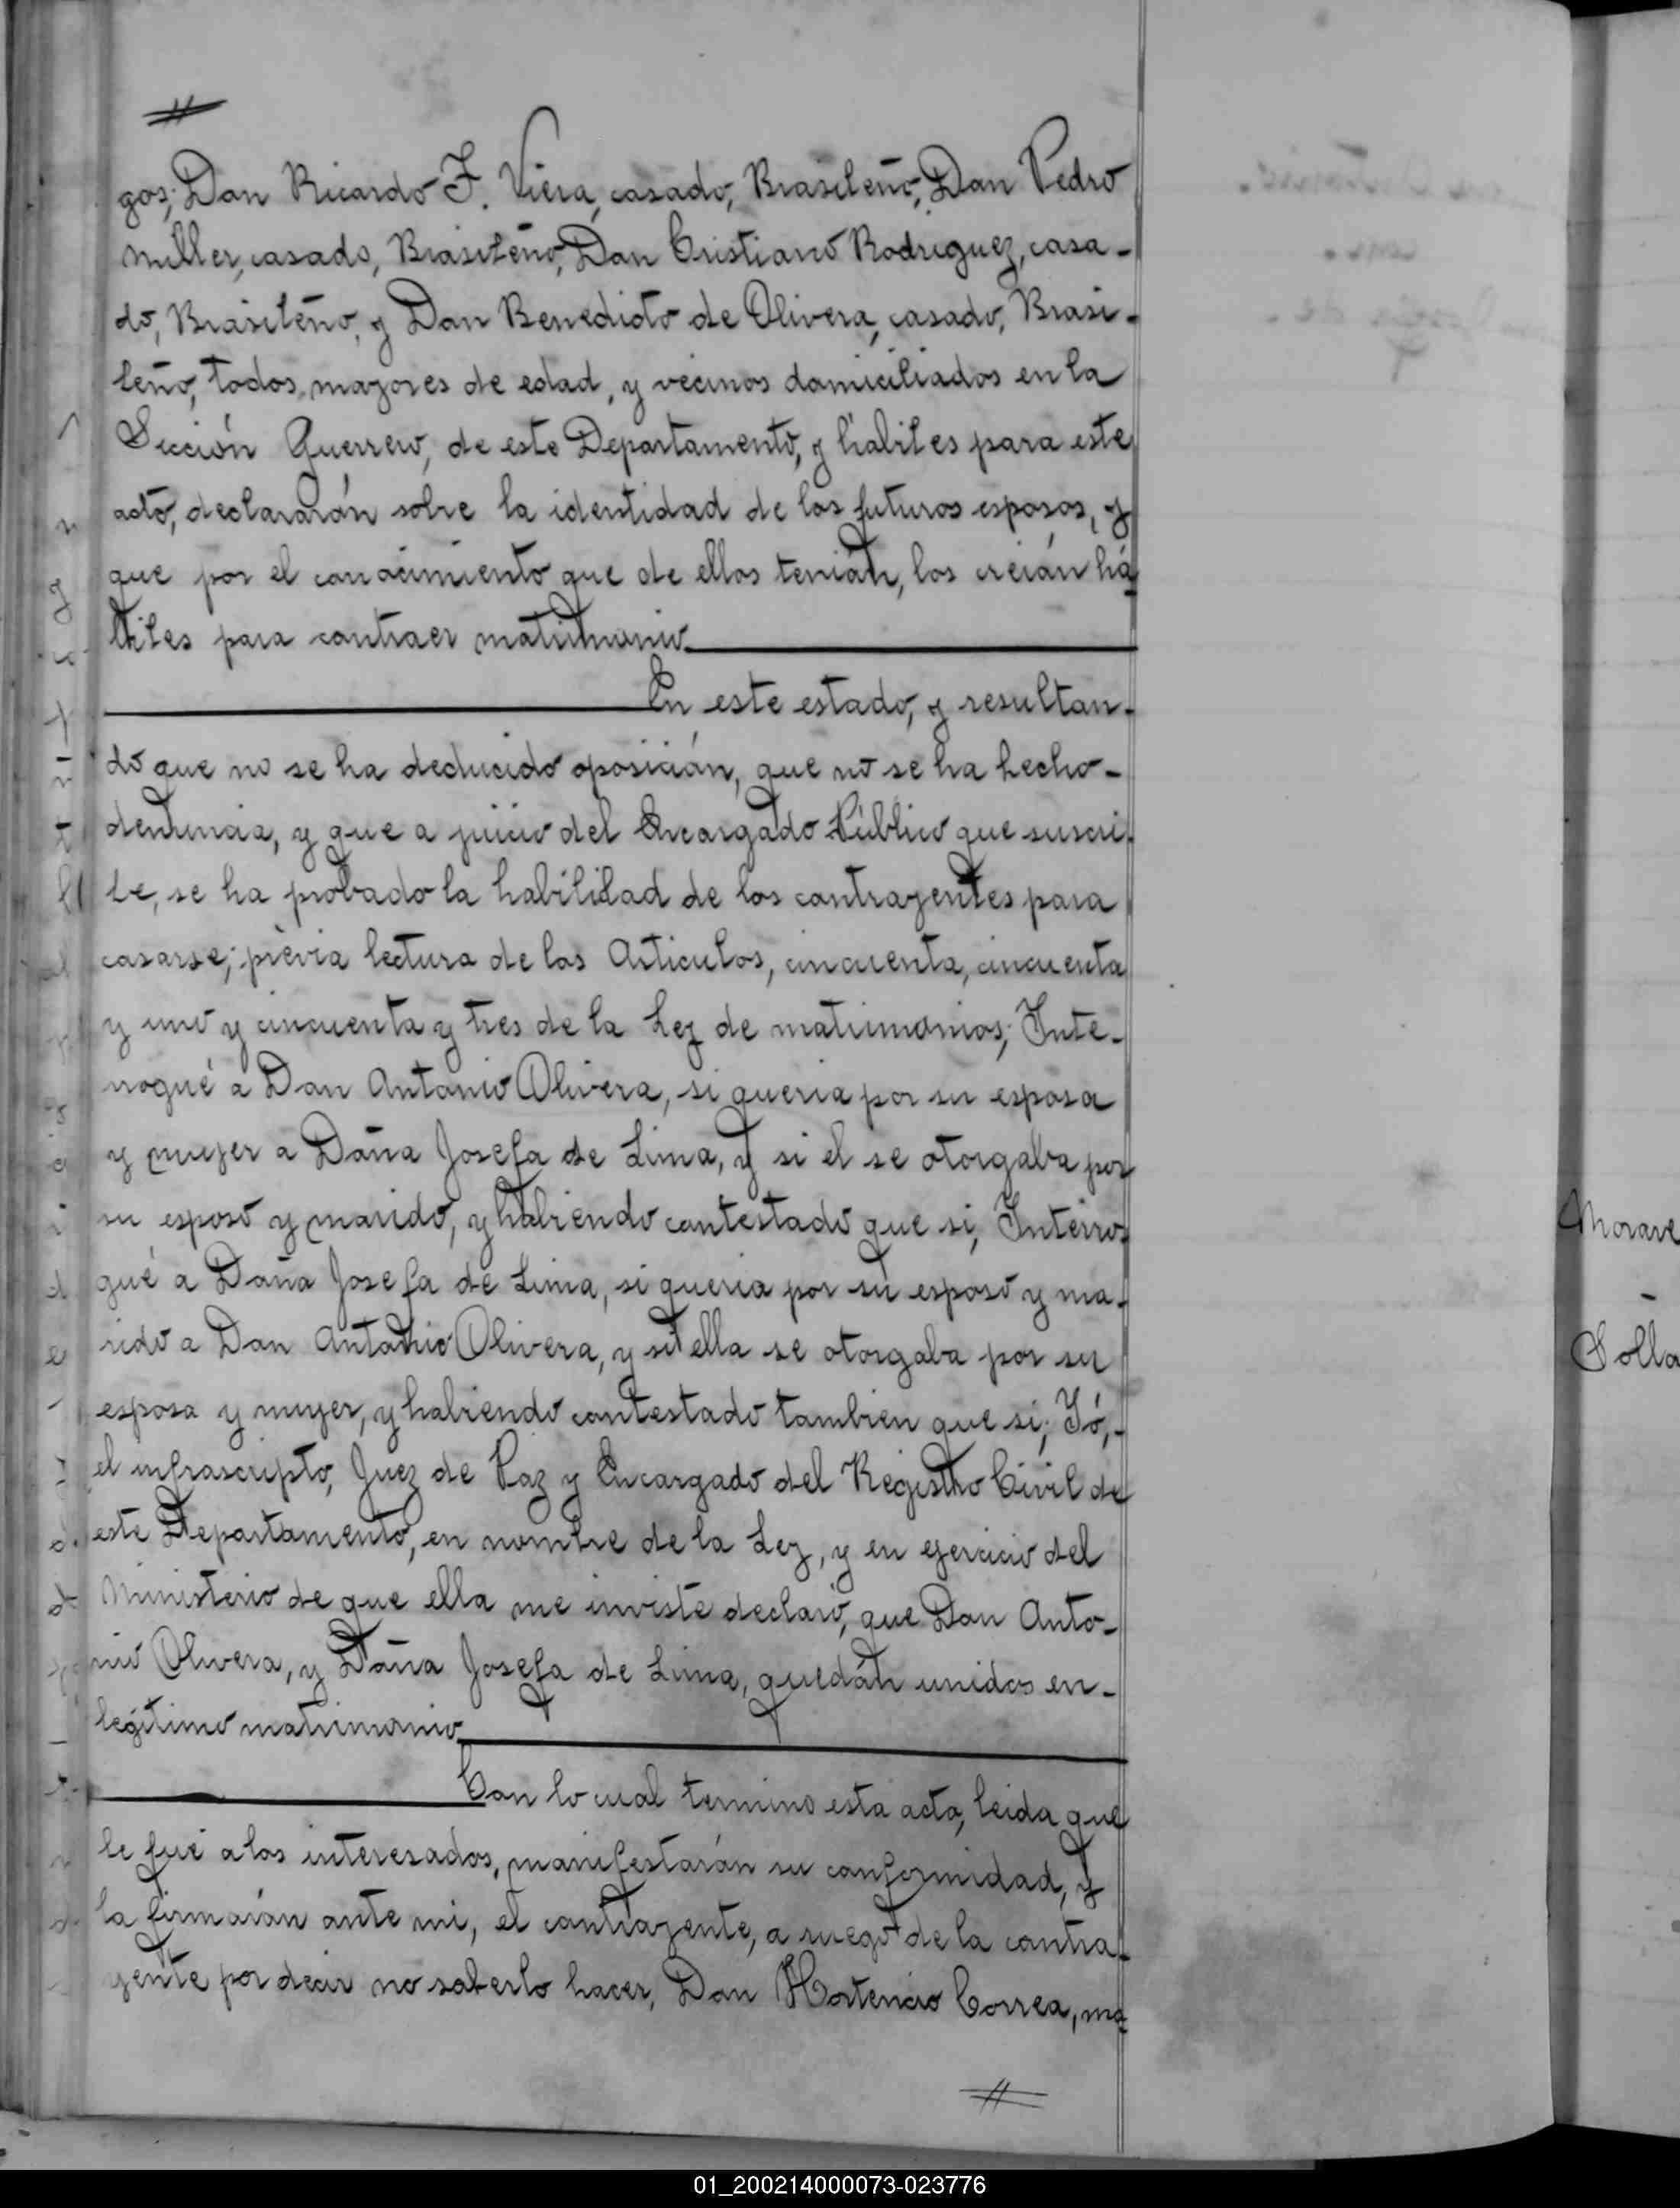 gos; Don Ricardo F. Viera, casado, Brasileño, Don Pedro
Miller, casado, Brasileño, Don Cristiano Rodriguez, casa-
do, Brasileño, y Don Benedicto de Olivera, casado, Brasi-
leño, todos, mayores de edad, y vecinos domiciliados en la
Sección Guerrero, de este Departamento, y hábiles para este
acto, declararón sobre la identidad de los futuros esposos, y
que por el conocimiento que de ellos tenián, los creián há-
biles para contraer matrimonio.
En este estado, y resultan-
do que no se ha deducido oposición, que no se ha hecho-
denuncia, y que a juicio del Encargado Público que suscri-
be, se ha probado la habilidad de los contrayentes para
casarse; prèvia lectura de los Articulos, cincuenta, cincuenta
y uno y cincuenta y tres de la Ley de matrimonios; Inte-
rrogué a Don Antonio Olivera, si queria por su esposa
y mujer a Doña Josefa de Lima, y si el se otorgaba por
su esposo y marido, y habiendo contestado que si, Interro-
gué a Doña Josefa de Lima, si queria por su esposo y ma-
rido a Don Antonio Olivera, y si ella se otorgaba por su
esposa y mujer, y habiendo contestado tambien que si; Yó,-
el infrascripto, Juez de Paz y Encargado del Registro Civil de
este Departamento, en nombre de la Ley, y en ejercicio del
Ministerio de que ella me inviste declaro, que Don Anto-
nio Olivera, y Doña Josefa de Lima, quedán unidos en-
legitimo matrimonio
Con lo cual termino esta acta, leida que
le fué a los interesados, manifestarón su conformidad, y
la firmarón ante mi, el contrayente, a ruego de la contra-
yente por decir no saberlo hacer, Don Hortencio Correa, ma-
01_200214000073-023776